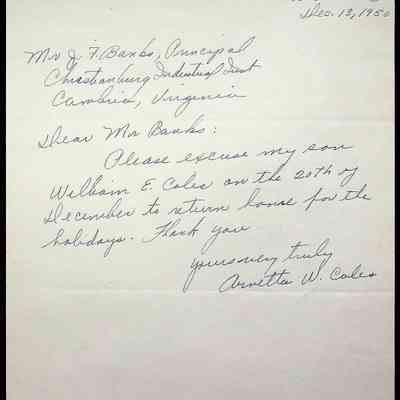 Dec. 13, 1950
Mr J. F. Banks, Principal
Christianburg Industrial Inst
Cambria, Virginia
Dear Mr Banks:
Please excuse my son
William E. Coles on the 20th of
December to return home for the
holidays. Thank you
yours very truly
Arvetta W. Coles